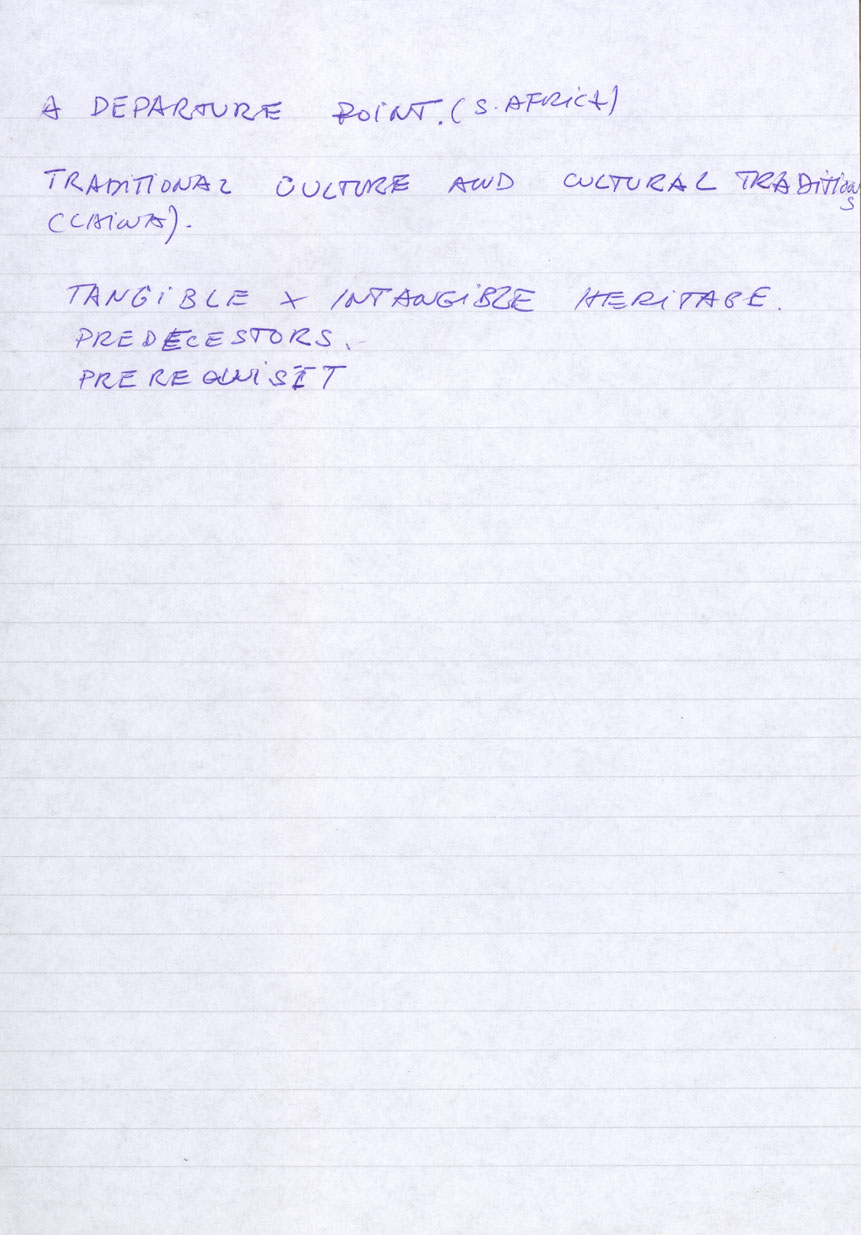 A DEPARTURE POINT. (S. AFRICA)
TRADITIONAL CULTURE AND CULTURAL TRADITIONS
(CHINA).
TANGIBLE + INTANGIBLE HERITAGE.
PREDECESTORS.
PREREQUISIT